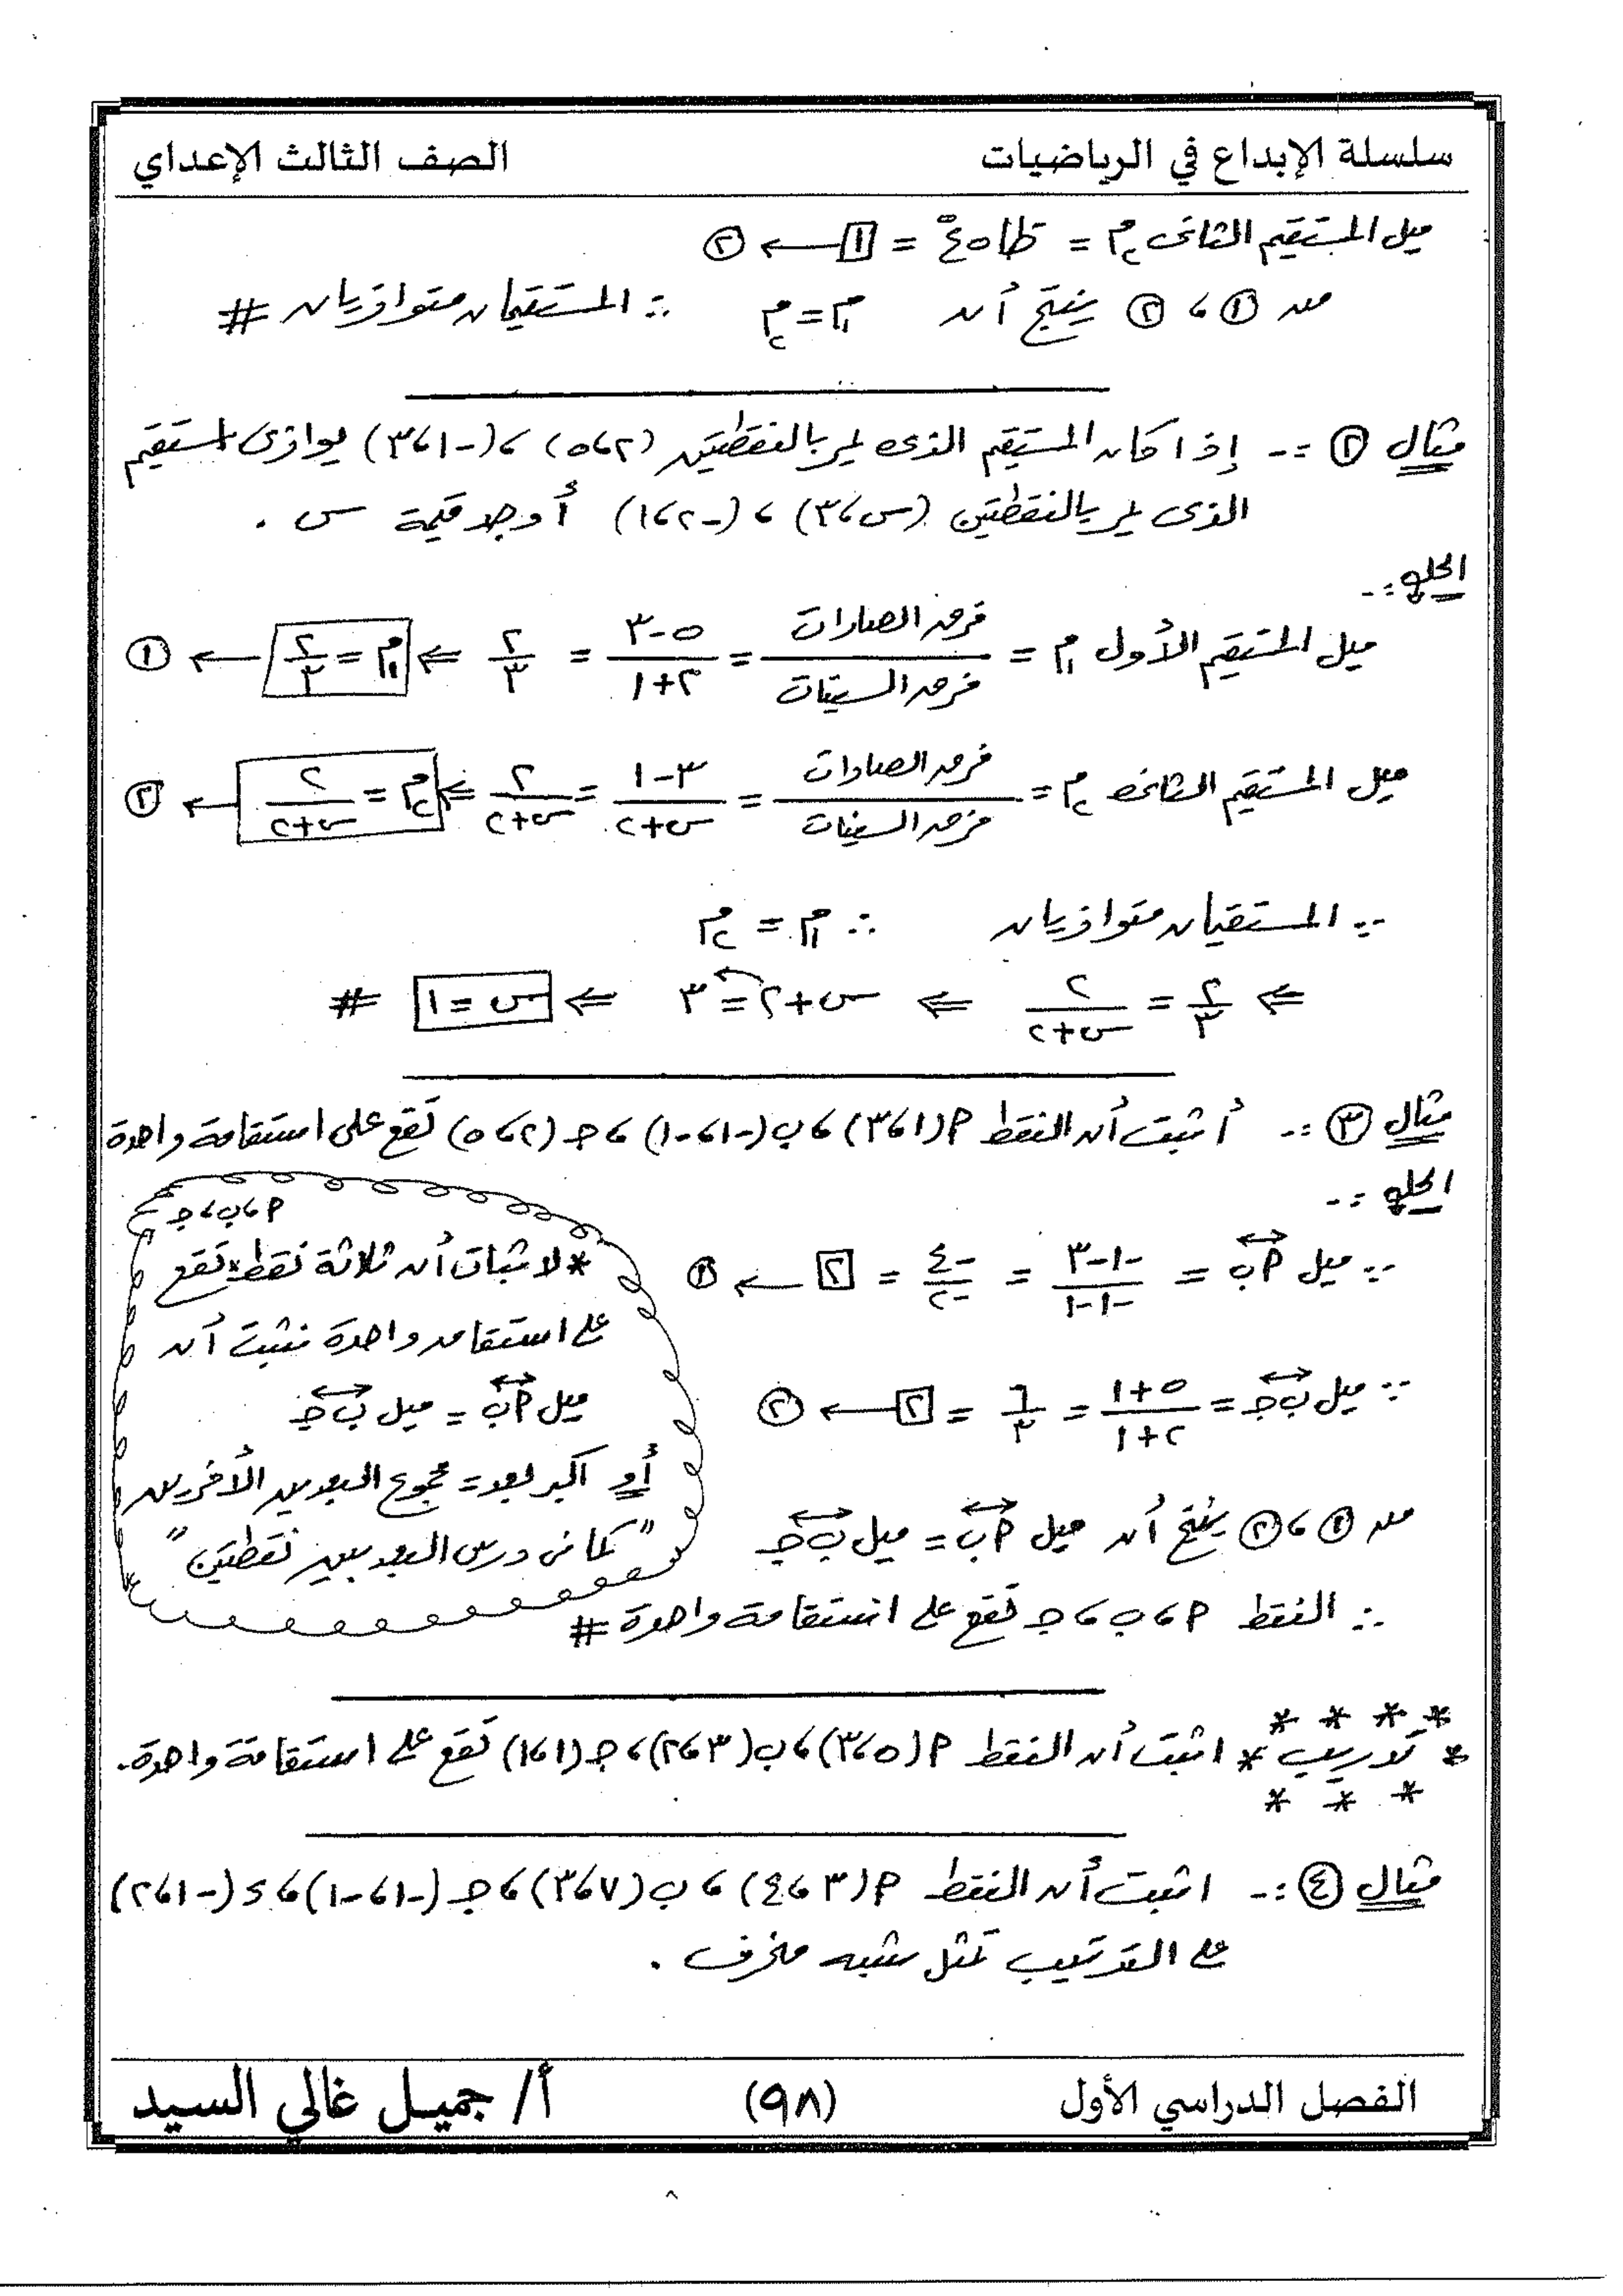 سلسلة الإبداع في الرياضيات
الصف الثالث الإعداي
ميل المستقيم الثانى م٢ = ظا ٤٥° = ١ ← (٢)
من (١) ، (٢) ينتج أن م١ = م٢ ∴ المستقيمان متوازيان #
مثال (٢) :- إذا كان المستقيم الذى يمر بالنقطتين (٢ ، ٥) ، (-١ ، ٣) يوازى المستقيم
الذى يمر بالنقطتين (س ، ٣) ، (-٢ ، ١) أوجد قيمة س .
الحل :-
ميل المستقيم الأول م١ = فرق الصادات / فرق السينات = ٥-٣ / ٢+١ = ٢/٣ ⇐ م١ = ٢/٣ ← (١)
ميل المستقيم الثانى م٢ = فرق الصادات / فرق السينات = ٣-١ / س+٢ = ٢ / س+٢ ⇐ م٢ = ٢ / س+٢ ← (٢)
∵ المستقيمان متوازيان ∴ م١ = م٢
⇐ ٢/٣ = ٢ / س+٢ ⇐ س+٢ = ٣ ⇐ س = ١ #
مثال (٣) :- أثبت أن النقط P(١ ، ٣) ، ب(-١ ، -١) ، جـ (٢ ، ٥) تقع على استقامة واحدة
الحل :-
∵ ميل Pب = -١-٣ / -١-١ = -٤ / -٢ = ٢ ← (١)
∵ ميل ب جـ = ٥+١ / ٢+١ = ٦/٣ = ٢ ← (٢)
من (١) ، (٢) ينتج أن ميل Pب = ميل ب جـ
∴ النقط P ، ب ، جـ تقع على استقامة واحدة #
P ، ب ، جـ
* لاثبات أن ثلاثة نقط تقع
على استقامه واحدة نثبت أن
ميل Pب = ميل ب جـ
أو أكبر بعد = مجموع البعدين الأخرين
" كما فى درس البعد بين نقطتين "
* تدريب * اثبت أن النقط P(٥ ، ٣) ، ب(٣ ، ٢) ، جـ (١ ، ١) تقع على استقامة واحدة.
مثال (٤) :- اثبت أن النقط P(٣ ، ٤) ، ب (٧ ، ٣) ، جـ (-١ ، -١) ، د (-١ ، ٢)
على الترتيب تمثل شبه منحرف .
الفصل الدراسي الأول
(٩٨)
أ/ جميل غالي السيد